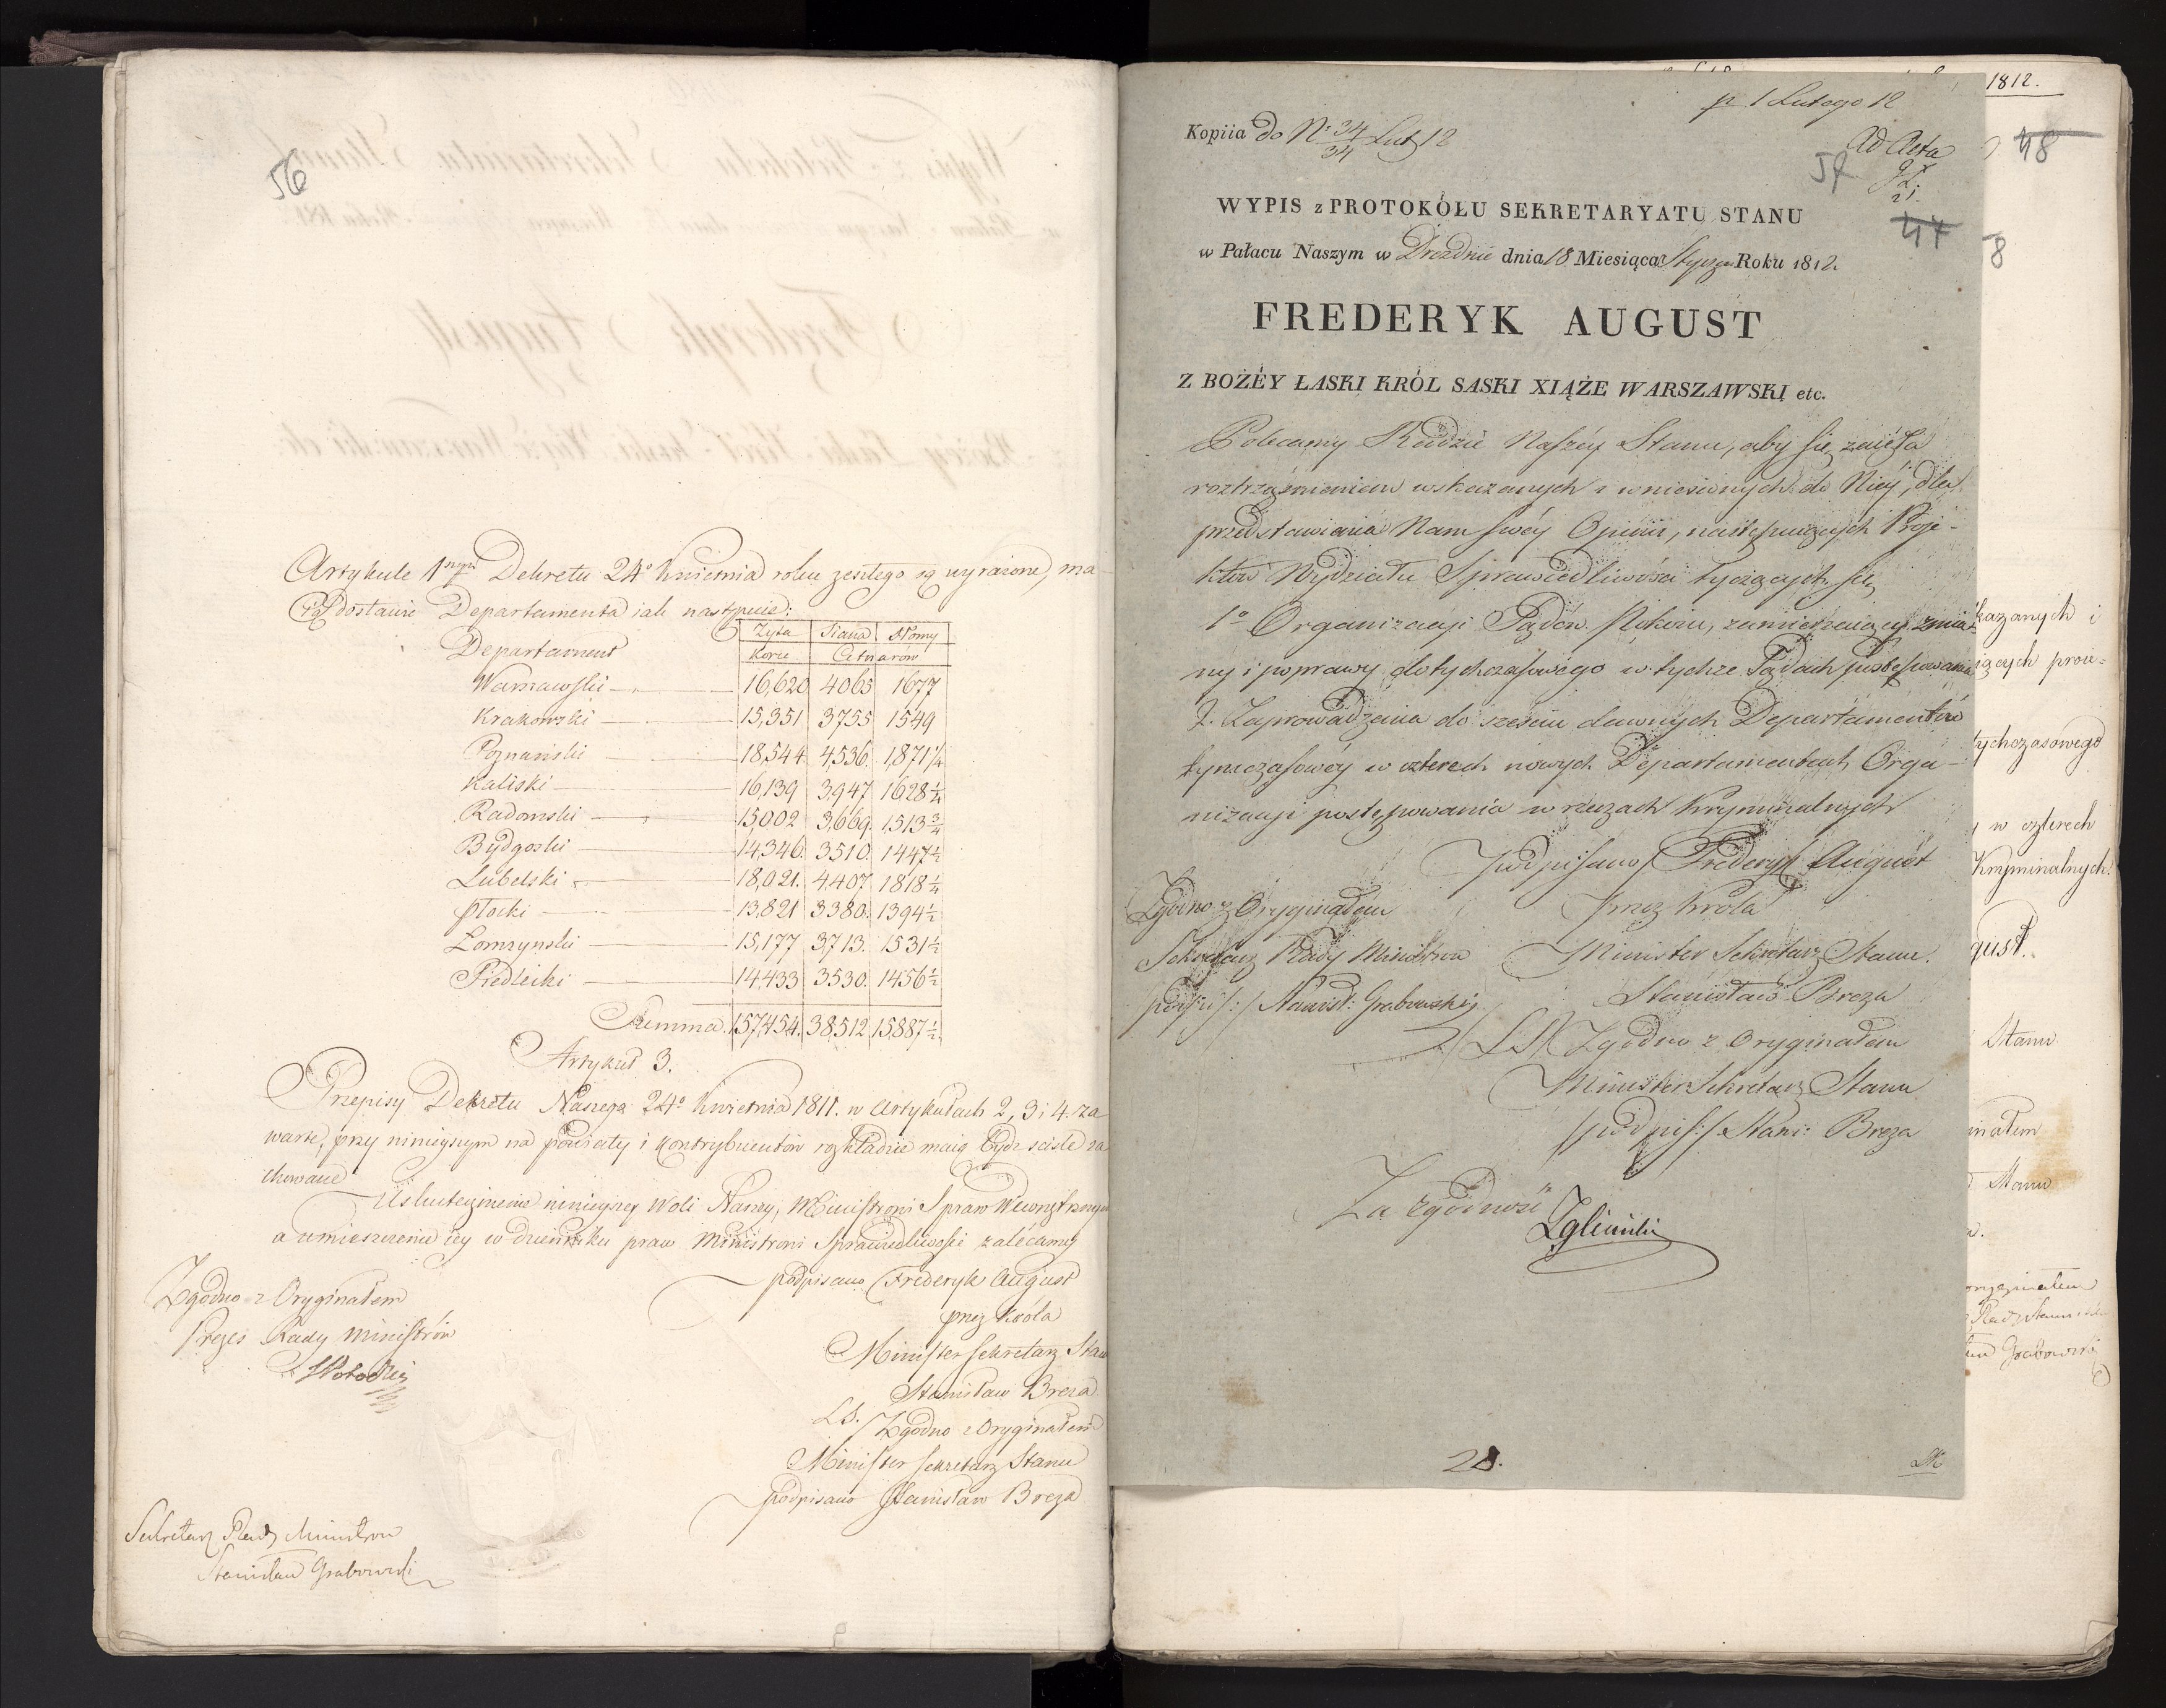 56
Artykule 1. Dekretu 24° Kwietnia roku zeszłego są wyrażone, ma
ią dostawić Departamenta iak następuie:
Departament | Żyta Korcy | Siana Cetnarów | Słomy
Warszawski 16,620 4065 1677
Krakowski 15,351 3755 1549
Poznański 18,544 4,536. 1,871 1/4
Kaliski 16,139 3,947 1628 1/4
Radomski 15,002 3,669. 1,513 3/4
Bydgoski 14,346. 3510. 1447 1/2
Lubelski 18,021. 4,407 1818 1/4
Płocki 13,821 3380. 1394 1/2
Łomżynski 15,177 3,713. 1531 1/2
Siedlecki 14,433 3530. 1456 1/2
Summa. 157,454. 38,512 15,887 1/2
Artykuł 3.
Przepisy Dekretu Naszego 24° Kwietnia 1811. w Artykułach 2, 3 i 4. za
warte, przy ninieyszym na powiaty i kontrybuentów rozkładzie maią bydź ściśle za
chowane
Uskutecznienie ninieyszey Woli Naszey, Ministrowi Spraw Wewnętrznych
a umieszczenie iey w dzienniku praw Ministrowi Sprawiedliwości zalécamy
podpisano Frederyk August
przez Króla
Minister Sekretarz Stanu
Stanisław Breza
LS. Zgodno z Oryginałem
Minister Sekretarz Stanu
podpisano Stanisław Breza
Zgodno z Oryginałem
Prezes Rady Ministrów
Sekretarz Rady Ministrow
Stanisław Grabowski
p. 1 Lutego 12
Kopiia do Nr 34/34 Lut 12
Ad Acta
57
47
WYPIS z PROTOKÓŁU SEKRETARYATU STANU
w Pałacu Naszym w Dreźdnie dnia 18 Miesiąca Stycz. Roku 1812.
FREDERYK AUGUST
Z BOŻÉY ŁASKI KRÓL SASKI XIĄŻE WARSZAWSKI etc.
Polecamy Radzie Naszéy Stanu, aby się zaięła
roztrząśnieniem wskazanych i wniesionych do Niéy, dla
przedstawienia Nam swéy Opinii, następuiących Proje-
któw Wydziału Sprawiedliwości tyczących się
1° Organizacyi Sądów Pokoiu, zamierzaiącey zmia-
ny i poprawy dotychczasowego w tychże Sądach postępowania
2. Zaprowadzenia do sześciu dawnych Departamentów
tymczasowéy w czterech nowych Departamentach Orga-
nizacyi postępowania w rzeczach Kryminalnych
/podpisano/ Frederyk August
przez Króla
Minister Sekretarz Stanu.
Stanisław Breza
/LS/ Zgodno z Oryginałem
Minister Sekretarz Stanu
/podpis:/ Stani: Breza
Zgodno z Oryginałem
Sekretarz Rady Ministrów
/podpis:/ Stanisł: Grabowski
Za zgodność
28.
1812.
48
8
kazanych i
iących proie-
tychczasowego
w czterech
Kryminalnych.
gust.
Stanu
inałem
Stanu
oryginałem
Grabowski